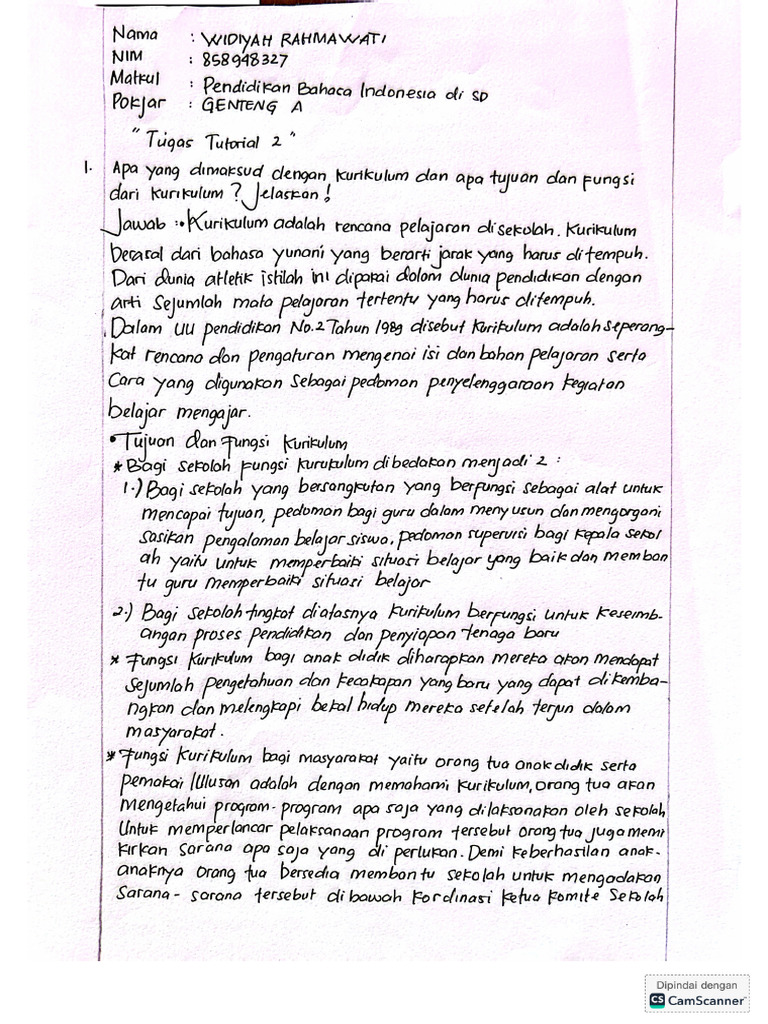 Nama : WIDIYAH RAHMAWATI
NIM : 858948327
Matkul : Pendidikan Bahasa Indonesia di SD
Pokjar : GENTENG A
"Tugas Tutorial 2"
1. Apa yang dimaksud dengan kurikulum dan apa tujuan dan fungsi
dari kurikulum? Jelaskan!
Jawab : • Kurikulum adalah rencana pelajaran disekolah. Kurikulum
berasal dari bahasa yunani yang berarti jarak yang harus ditempuh.
Dari dunia atletik istilah ini dipakai dalam dunia pendidikan dengan
arti sejumlah mata pelajaran tertentu yang harus ditempuh.
Dalam UU pendidikan No.2 Tahun 1989 disebut kurikulum adalah seperang-
kat rencana dan pengaturan mengenai isi dan bahan pelajaran serta
Cara yang digunakan sebagai pedoman penyelenggaraan kegiatan
belajar mengajar.
• Tujuan dan Fungsi Kurikulum
* Bagi sekolah fungsi kurukulum dibedakan menjadi 2 :
1.) Bagi sekolah yang bersangkutan yang berfungsi sebagai alat untuk
mencapai tujuan, pedoman bagi guru dalam menyusun dan mengorgani
sasikan pengalaman belajar siswa, pedoman supervisi bagi kepala sekol
ah yaitu untuk memperbaiki situasi belajar yang baik dan memban
tu guru memperbaiki situasi belajar
2.) Bagi sekolah tingkat diatasnya kurikulum berfungsi untuk keseimb-
angan proses pendidikan dan penyiapan tenaga baru
* Fungsi kurikulum bagi anak didik diharapkan mereka akan mendapat
sejumlah pengetahuan dan kecakapan yang baru yang dapat dikemba-
ngkan dan melengkapi bekal hidup mereka setelah terjun dalam
masyarakat.
* Fungsi kurikulum bagi masyarakat yaitu orang tua anak didik serta
pemakai lulusan adalah dengan memahami kurikulum, orang tua akan
mengetahui program-program apa saja yang dilaksanakan oleh sekolah
Untuk memperlancar pelaksanaan program tersebut orang tua juga memi
kirkan sarana apa saja yang di perlukan. Demi keberhasilan anak-
anaknya orang tua bersedia membantu sekolah untuk mengadakan
Sarana-sarana tersebut dibawah kordinasi ketua komite sekolah
Dipindai dengan
CS CamScanner